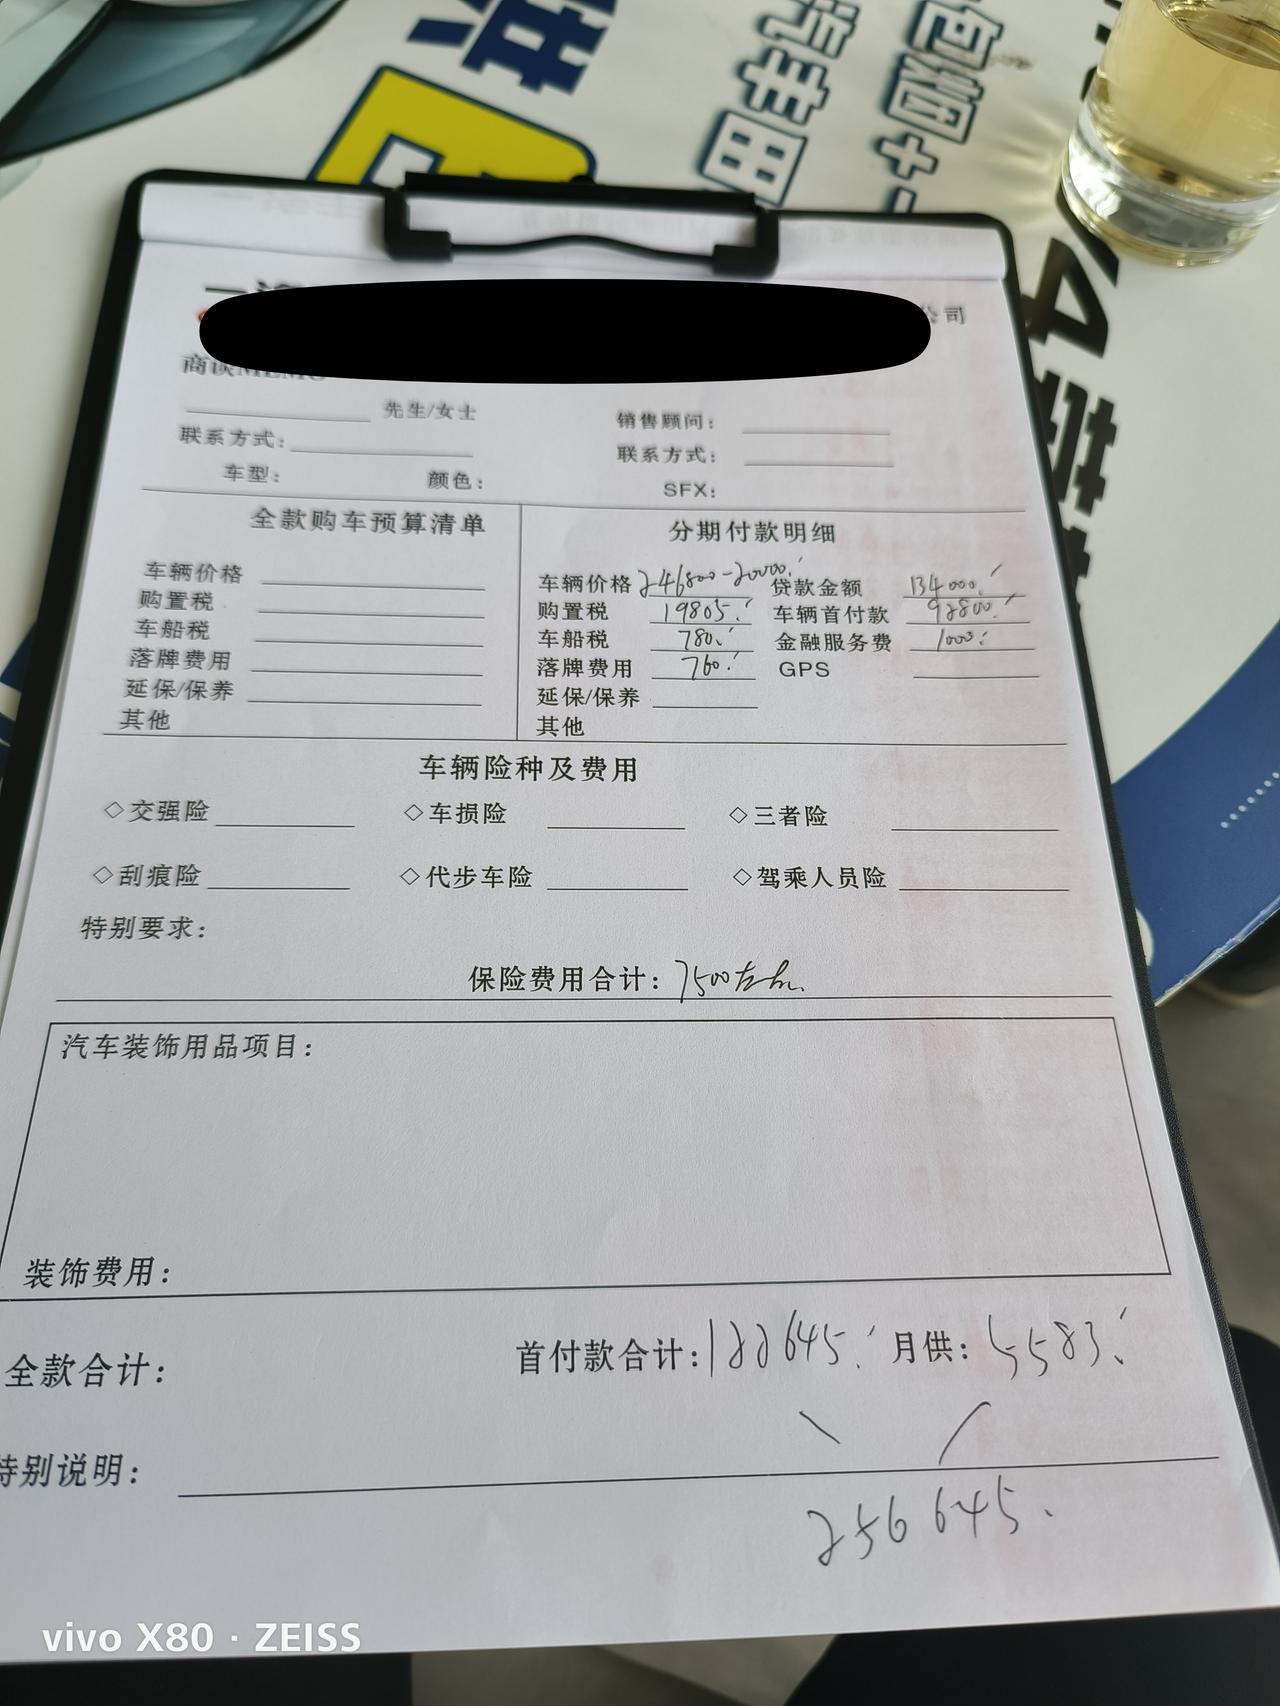 一汽
公司
商谈MEMO
先生/女士 销售顾问:
联系方式: 联系方式:
车型: 颜色: SFX:
全款购车预算清单
车辆价格
购置税
车船税
落牌费用
延保/保养
其他
分期付款明细
车辆价格 246800-20000. 贷款金额 134000.
购置税 19805. 车辆首付款 92800.
车船税 780. 金融服务费 1000.
落牌费用 760. GPS
延保/保养
其他
车辆险种及费用
◇交强险 ◇车损险 ◇三者险
◇刮痕险 ◇代步车险 ◇驾乘人员险
特别要求:
保险费用合计: 7500左右.
汽车装饰用品项目:
装饰费用:
全款合计: 首付款合计: 122645. 月供: 5583.
特别说明:
256645.
vivo X80 · ZEISS